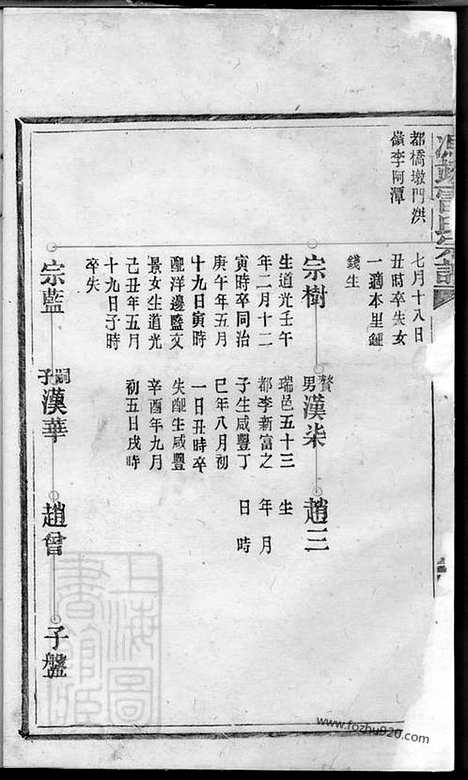 都橋墩門洪
嶺李阿潭
七月十八日
丑時卒失女
一適本里鍾
錢生
宗樹
生道光壬午
年二月十二
寅時卒同治
庚午年五月
十九日寅時
配洋邊藍文
景女生道光
己丑年五月
十九日子時
卒失
贅男漢柒
瑞邑五十三
都李新富之
子生咸豐丁
巳年八月初
一日丑時卒
失配生咸豐
辛酉年九月
初五日戌時
趙三
生
年月
日時
宗藍
嗣子漢華
趙曾
子盤
上海圖書館藏
www.fozhu920.com